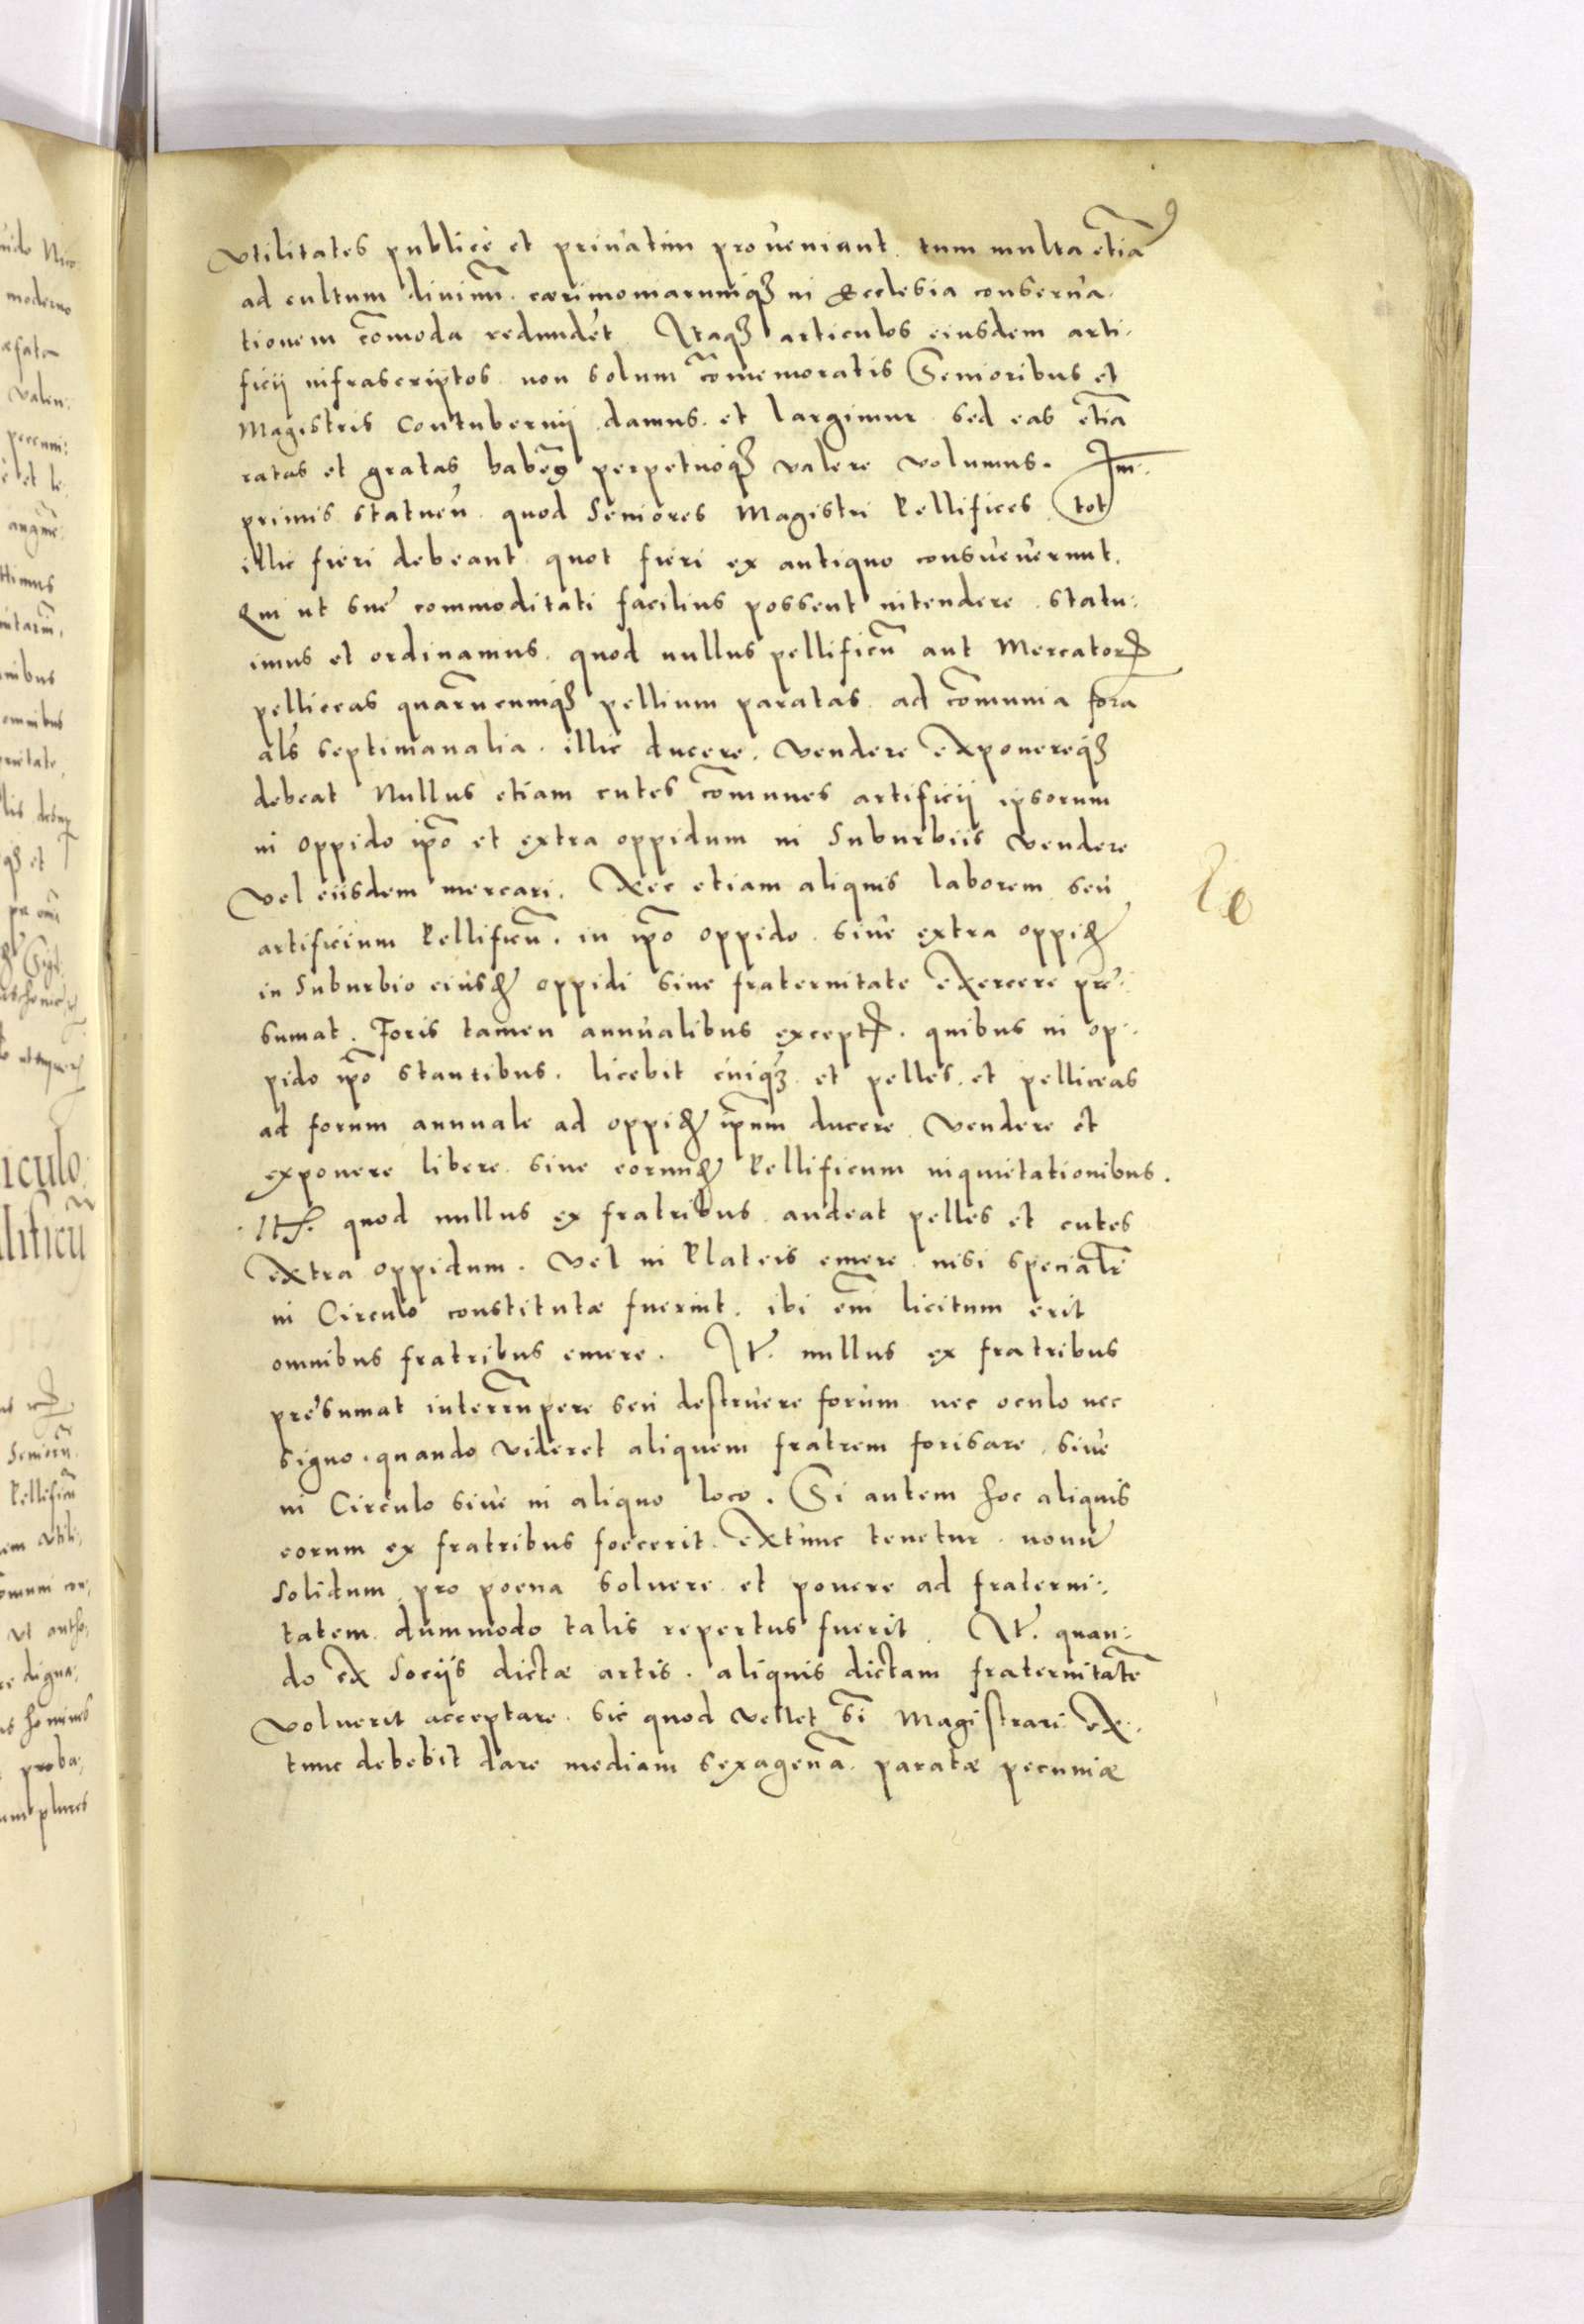 utilitates publicè et privatim proveniant. tum multa etiã
ad cultum divinũ. cærimoniarumq3 in Ecclesia conserva-
tionem cõmoda redundẽt. Itaq3 articulos eiusdem arti-
ficij infrascriptos. non solum cõmemoratis Senioribus et
Magistris Contubernij damus. et largimur. sed eas etiã
ratas et gratas habem9 perpetuoq3 valere volumus. Im-
primis statuen. quod Seniores Magistri Pellifices tot
illic fieri debeant quot fieri ex antiquo consueverunt.
Qui ut suę commoditati facilius possent intendere. statu:
imus et ordinamus. quod nullus pellificũ aut Mercatorꝝ
pelliceas quarũcumq3 pellium paratas. ad cõmunia fora
als septimanalia. illic ducere. vendere exponereq3
debeat Nullus etiam cutes cõmunes artificij ipsorum
in oppido ipõ et extra oppidum in Suburbiis vendere
vel eiisdem mercari. Nec etiam aliquis laborem seu
artificium Pellificũ. in ipõ oppido. sive extra oppid
in Suburbio eiusd oppidi sine fraternitate exercere pre:
sumat. Foris tamen annualibus exceptꝭ. quibus in op:
pido ipõ stantibus. licebit cuiq3 et pelles. et pelliceas
ad forum annuale ad oppid ipsum ducere. vendere et
exponere libere. sine eorund Pellificum inquietationibus.
Itẽ. quod nullus ex fratribus audeat pelles et cutes
extra oppidum. vel in Plateis emere. nisi specialr
in Circulo constitutæ fuerint. ibi em̃ licitum erit
omnibus fratribus emere. It. nullus ex fratribus
pręsumat interrũpere seu destruere forum nec oculo nec
signo. quando videret aliquem fratrem forisare. sive
in Circulo sive in aliquo loco. Si autem hoc aliquis
eorum ex fratribus foecerit. extunc tenetur. novũ
solidum pro poena solvere et ponere ad fraterni:
tatem. dummodo talis repertus fuerit. It. quan:
do ex Socijs dictæ artis. aliquis dictam fraternitatẽ
voluerit acceptare. sic quod vellet sĩ Magistrari. ex:
tunc debebit dare mediam sexagenã. paratæ pecuniæ